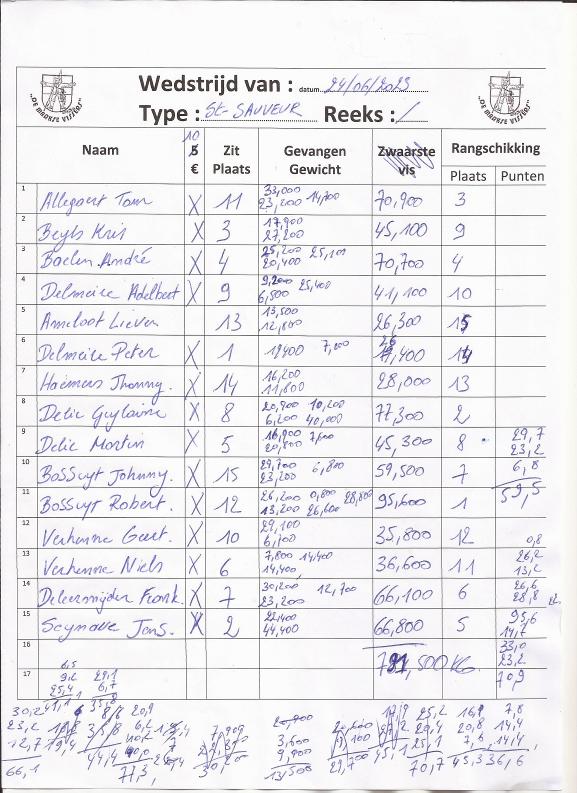 Wedstrijd van : datum 24/06/2023
Type : St-SAUVEUR Reeks : /
"DE MAARKSE VISSERS"
"DE MAARKSE VISSERS"
Naam 10 5 € Zit Plaats Gevangen Gewicht Zwaarste vis Rangschikking
Plaats Punten
1 Allegaert Tom X 11 33,000 23,200 14,700 70,900 3
2 Beyls Kris X 3 17,900 27,200 45,100 9
3 Baelen André X 4 25,200 20,400 25,100 70,700 4
4 Delmeire Adelbert X 9 9,200 6,500 25,400 41,100 10
5 Ameloot Lieven 13 13,500 12,800 26,300 15
6 Delmeire Peter X 1 19400 7,200 14
7 Haemers Jhonny. X 14 16,200 11,800 28,000 13
8 Delie Guylaine X 8 20,900 10,200 6,200 40,000 77,300 2
9 Delie Martin X 5 16,900 20,800 7,600 45,300 8 29,7 23,2
10 Bossuyt Johnny. X 15 29,700 23,200 6,800 59,500 7 6,8
59,5
11 Bossuyt Robert. X 12 26,200 0,800 28,800 13,200 26,600 95,600 1
12 Verhenne Geert. X 10 29,100 6,700 35,800 12 0,8
13 Verhenne Niels X 6 7,800 14,400 14,400 36,600 11 26,2 13,2
14 X 7 30,200 23,200 12,700 66,100 6 26,6 28,8
15 Seynave Jens. X 2 22,400 44,400 66,800 5 95,6 14,7
16 33,0 23,2
17 70,9
6,5
9,2 29,1
25,4 6,7
41,1 35,8
30,2 20,9 7,8
23,2 6,2 25,2 16,9 14,4
12,7 20,8 14,4
66,1 77,3 13,500 29,700 45,1 70,7 45,3 36,6